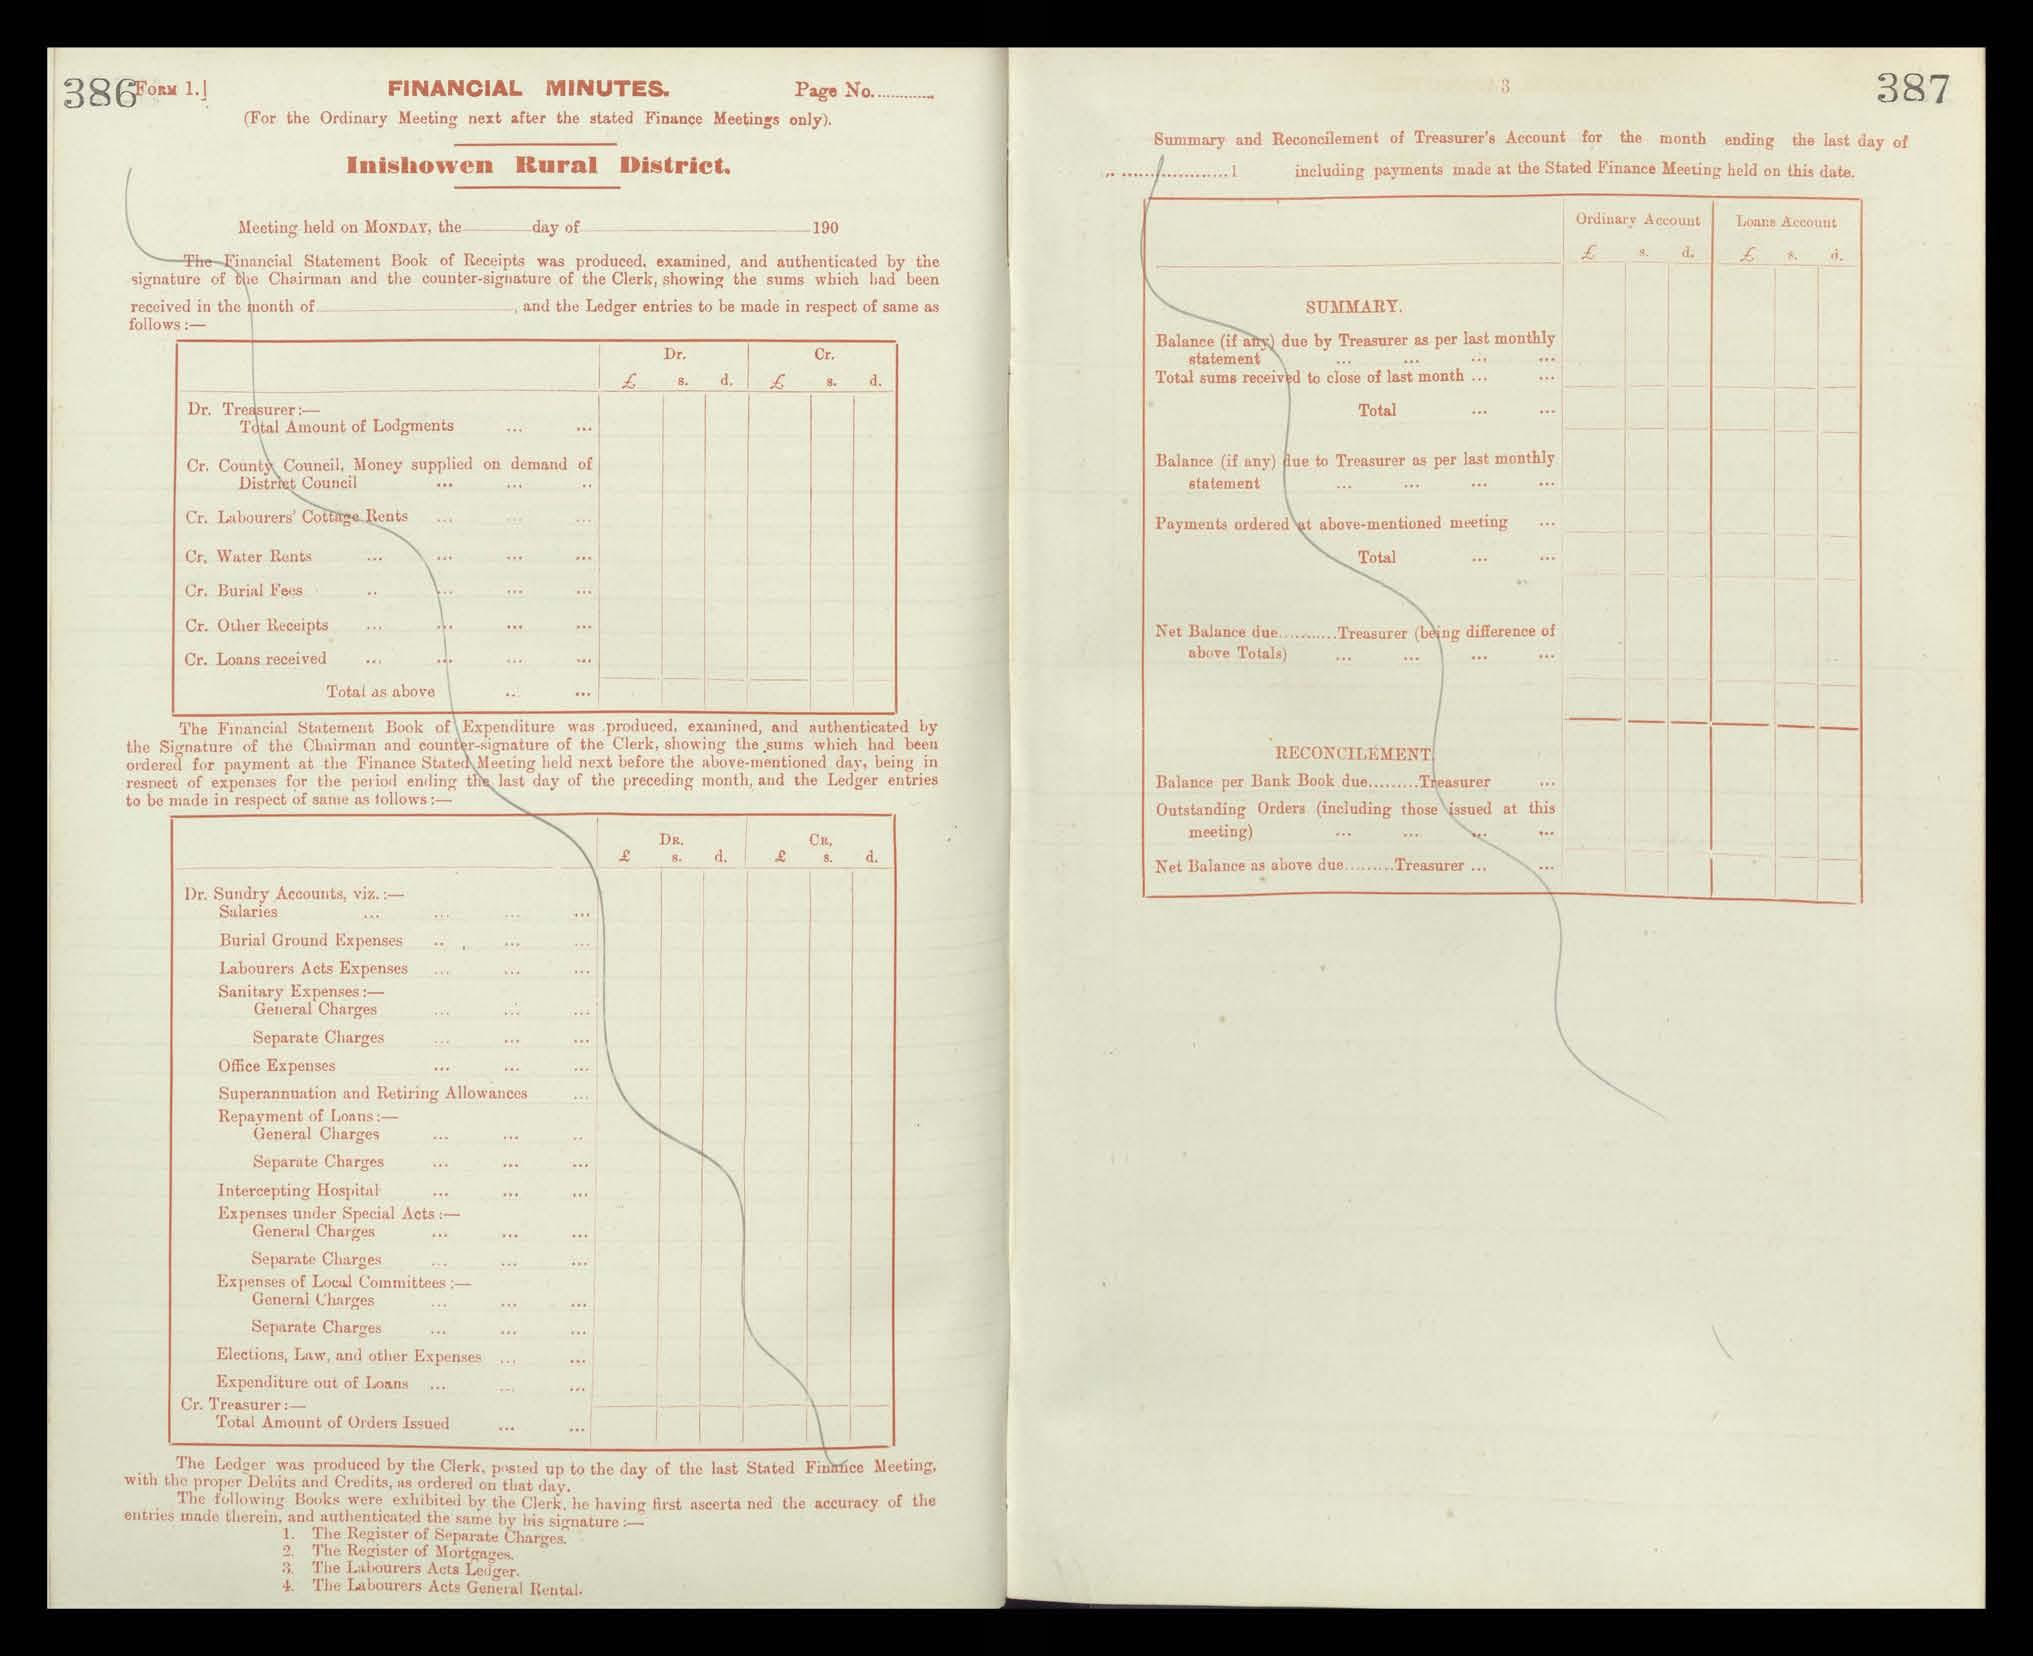 386
FORM 1.]
FINANCIAL MINUTES.
Page No.............
(For the Ordinary Meeting next after the stated Finance Meetings only).
Inishowen Rural District.
Meeting held on MONDAY, the day of 190
The Financial Statement Book of Receipts was produced, examined, and authenticated by the
signature of the Chairman and the counter-signature of the Clerk, showing the sums which had been
received in the month of , and the Ledger entries to be made in respect of same as
follows :—
Dr. Cr.
£ s. d. £ s. d.
Dr. Treasurer :—
Total Amount of Lodgments ... ...
Cr. County Council, Money supplied on demand of
District Council ... ... ..
Cr. Labourers' Cottage Rents ... ... ...
Cr. Water Rents ... ... ... ...
Cr. Burial Fees .. ... ... ...
Cr. Other Receipts ... ... ... ...
Cr. Loans received ... ... ... ...
Total as above ... ...
The Financial Statement Book of Expenditure was produced, examined, and authenticated by
the Signature of the Chairman and counter-signature of the Clerk, showing the sums which had been
ordered for payment at the Finance Stated Meeting held next before the above-mentioned day, being in
respect of expenses for the period ending the last day of the preceding month, and the Ledger entries
to be made in respect of same as follows :—
DR. CR.
£ s. d. £ s. d.
Dr. Sundry Accounts, viz. :—
Salaries ... ... ... ...
Burial Ground Expenses .. ... ...
Labourers Acts Expenses ... ... ...
Sanitary Expenses :—
General Charges ... ... ...
Separate Charges ... ... ...
Office Expenses ... ... ...
Superannuation and Retiring Allowances ...
Repayment of Loans :—
General Charges ... ... ..
Separate Charges ... ... ...
Intercepting Hospital ... ... ...
Expenses under Special Acts :—
General Charges ... ... ...
Separate Charges ... ... ...
Expenses of Local Committees :—
General Charges ... ... ...
Separate Charges ... ... ...
Elections, Law, and other Expenses ... ...
Expenditure out of Loans ... ... ...
Cr. Treasurer :—
Total Amount of Orders Issued ... ...
The Ledger was produced by the Clerk, posted up to the day of the last Stated Finance Meeting,
with the proper Debits and Credits, as ordered on that day.
The following Books were exhibited by the Clerk, he having first ascerta ned the accuracy of the
entries made therein, and authenticated the same by his signature :—
1. The Register of Separate Charges.
2. The Register of Mortgages.
3. The Labourers Acts Ledger.
4. The Labourers Acts General Rental.
3
387
Summary and Reconcilement of Treasurer's Account for the month ending the last day of
.....................1 including payments made at the Stated Finance Meeting held on this date.
Ordinary Account Loans Account
£ s. d. £ s. d.
SUMMARY.
Balance (if any) due by Treasurer as per last monthly
statement ... ... ... ...
Total sums received to close of last month ... ...
Total ... ...
Balance (if any) due to Treasurer as per last monthly
statement ... ... ... ...
Payments ordered at above-mentioned meeting ...
Total ... ...
Net Balance due...........Treasurer (being difference of
above Totals) ... ... ... ...
RECONCILEMENT.
Balance per Bank Book due.........Treasurer ...
Outstanding Orders (including those issued at this
meeting) ... ... ... ...
Net Balance as above due.........Treasurer ... ...